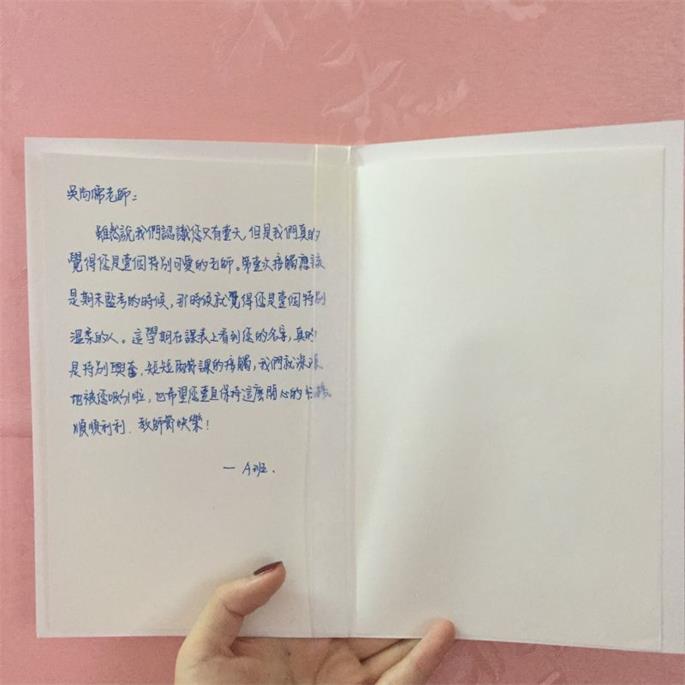 吳尚席老師：
雖然說我們認識您只有壹天，但是我們真的
覺得您是壹個特別可愛的老師。第壹次接觸應該
是期末監考的時候，那時候就覺得您是壹個特別
溫柔的人。這學期在課表上看到您的名字，真的
是特別興奮，短短兩節課的接觸，我們就深深
地被您吸引啦，也希望您壹直保持這麼開心的
順順利利．教師節快樂！
— A班．